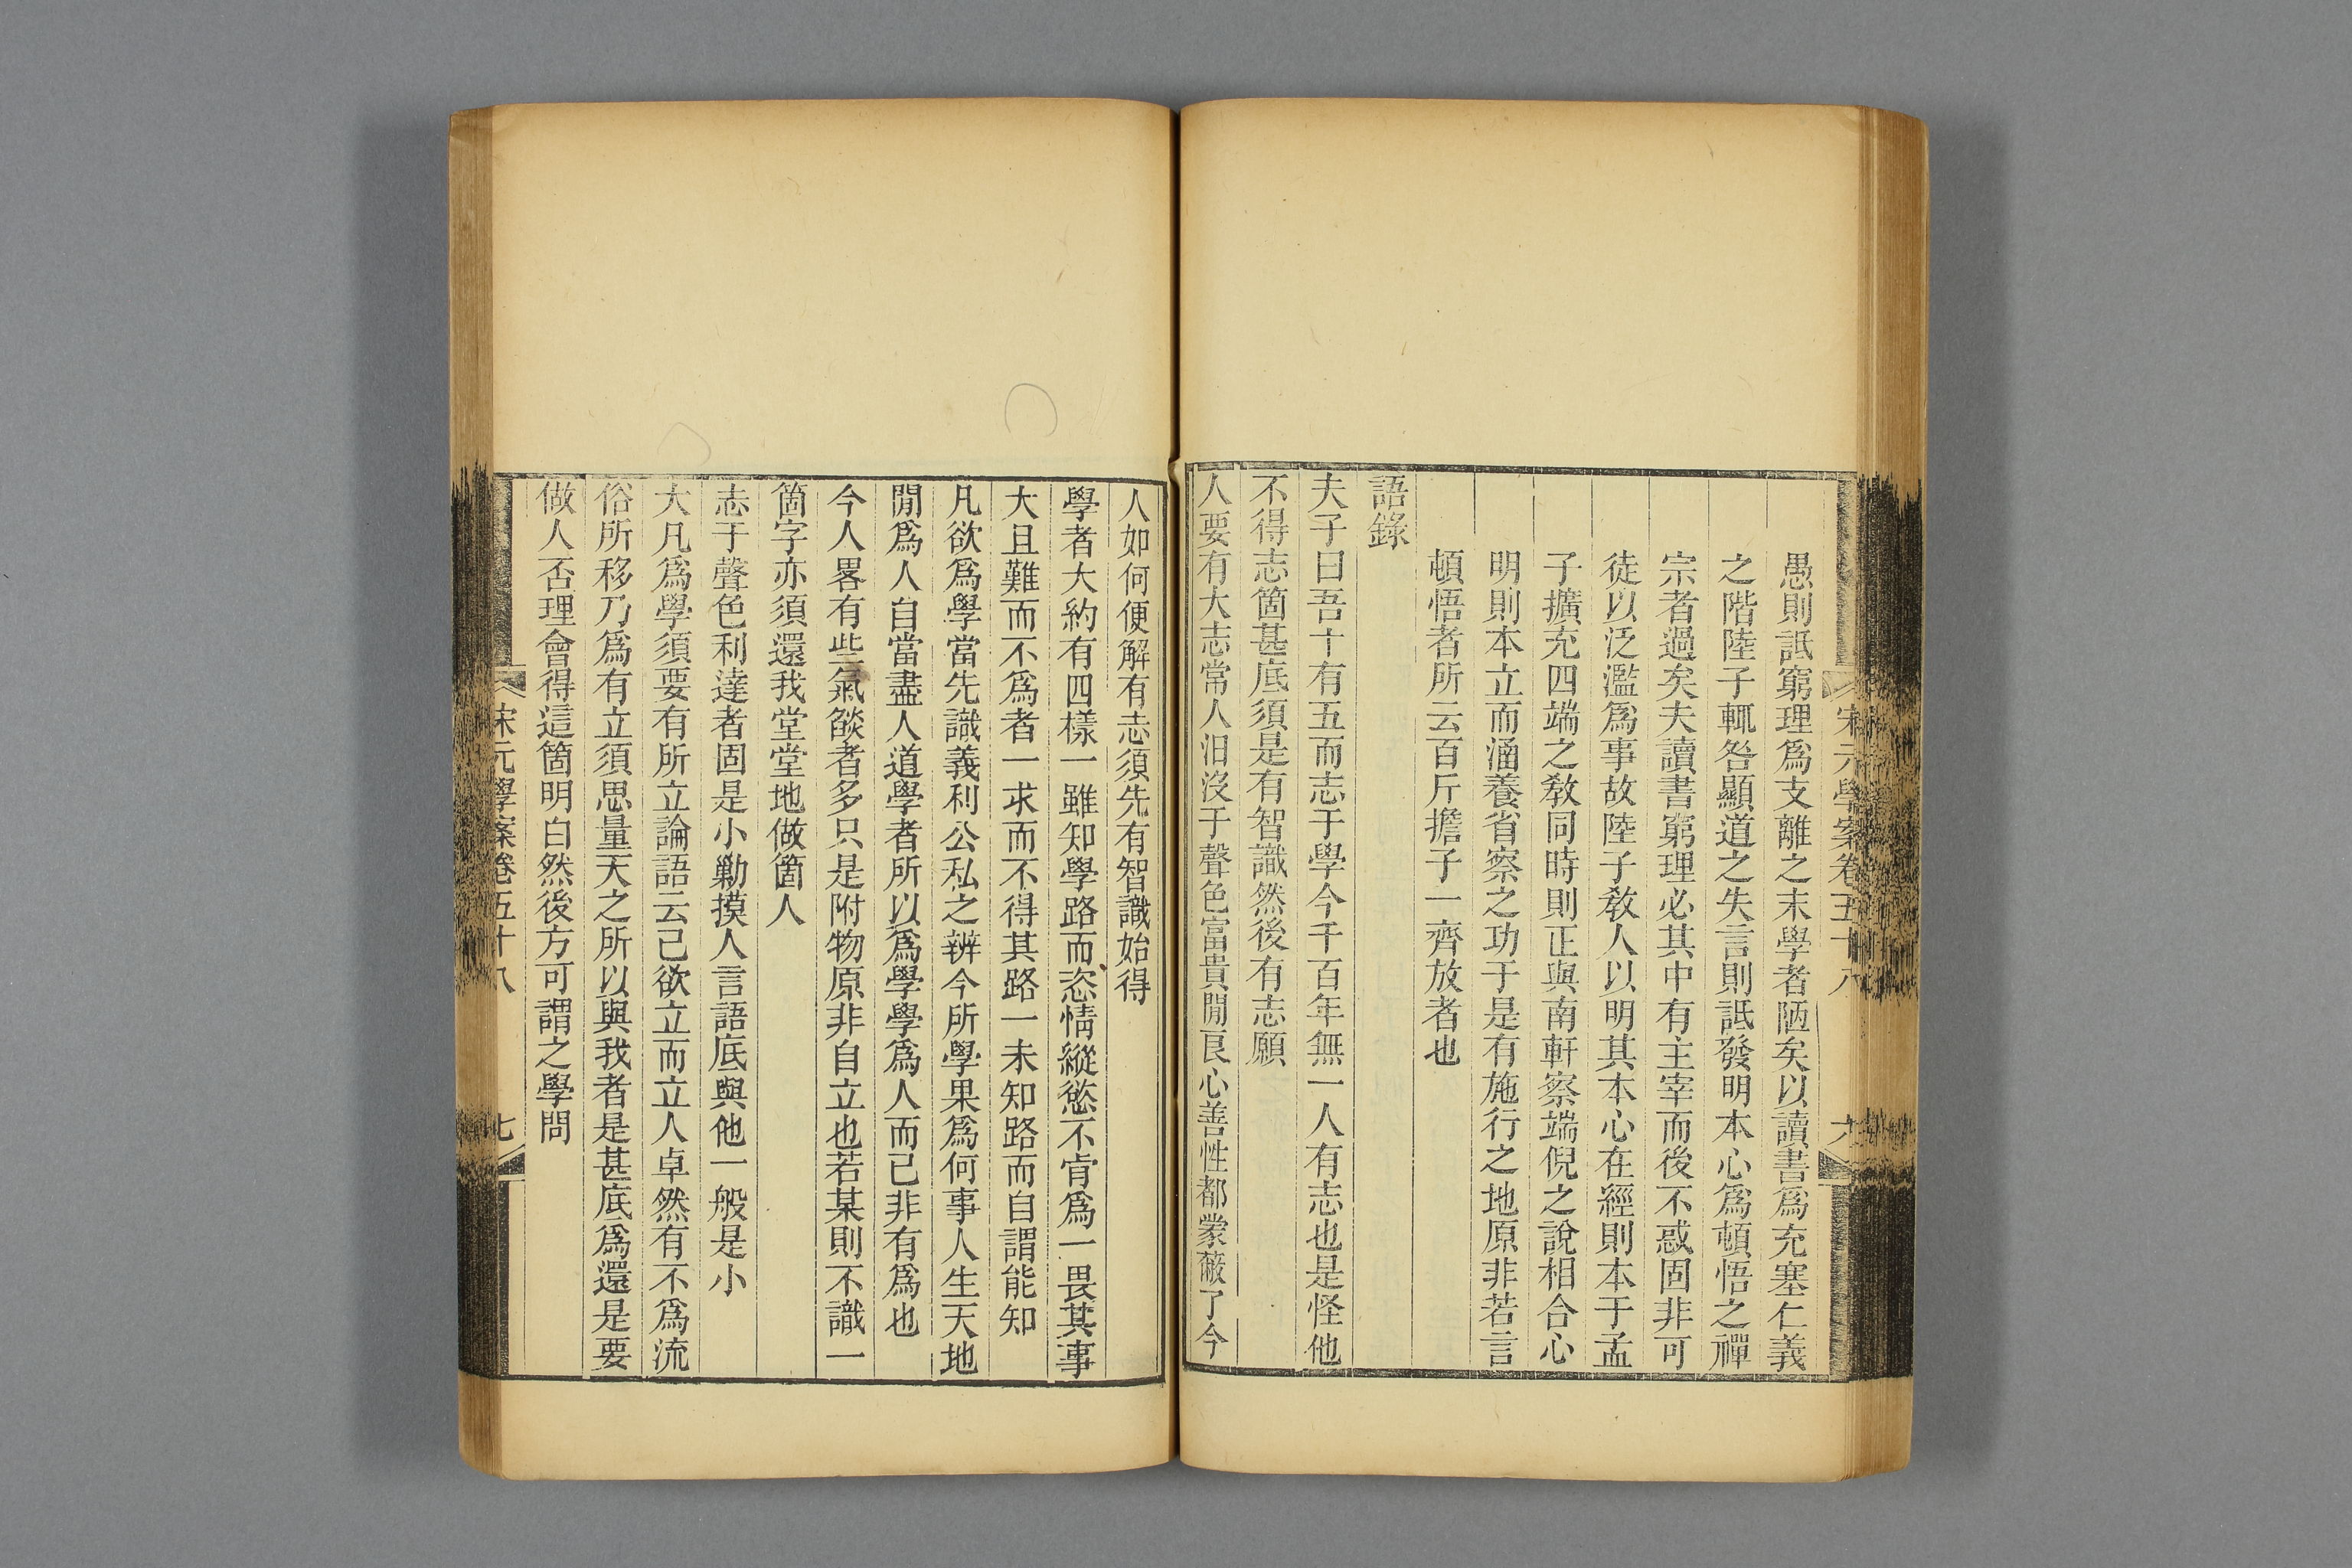 宋元學案卷五十八 六
愚則詆窮理爲支離之末學者陋矣以讀書爲充塞仁義
之階陸子輒咎顯道之失言則詆發明本心爲頓悟之禪
宗者過矣夫讀書窮理必其中有主宰而後不惑固非可
徒以泛濫爲事故陸子敎人以明其本心在經則本于孟
子擴充四端之敎同時則正與南軒察端倪之說相合心
明則本立而涵養省察之功于是有施行之地原非若言
頓悟者所云百斤擔子一齊放者也
語錄
夫子曰吾十有五而志于學今千百年無一人有志也是怪他
不得志箇甚底須是有智識然後有志願
人要有大志常人汨沒于聲色富貴閒良心善性都蒙蔽了今
人如何便解有志須先有智識始得
學者大約有四樣一雖知學路而恣情縱慾不肯爲一畏其事
大且難而不爲者一求而不得其路一未知路而自謂能知
凡欲爲學當先識義利公私之辨今所學果爲何事人生天地
閒爲人自當盡人道學者所以爲學學爲人而已非有爲也
今人畧有些氣燄者多只是附物原非自立也若某則不識一
箇字亦須還我堂堂地做箇人
志于聲色利達者固是小勦摸人言語底與他一般是小
大凡爲學須要有所立論語云己欲立而立人卓然有不爲流
俗所移乃爲有立須思量天之所以與我者是甚底爲還是要
做人否理會得這箇明白然後方可謂之學問
宋元學案卷五十八 七